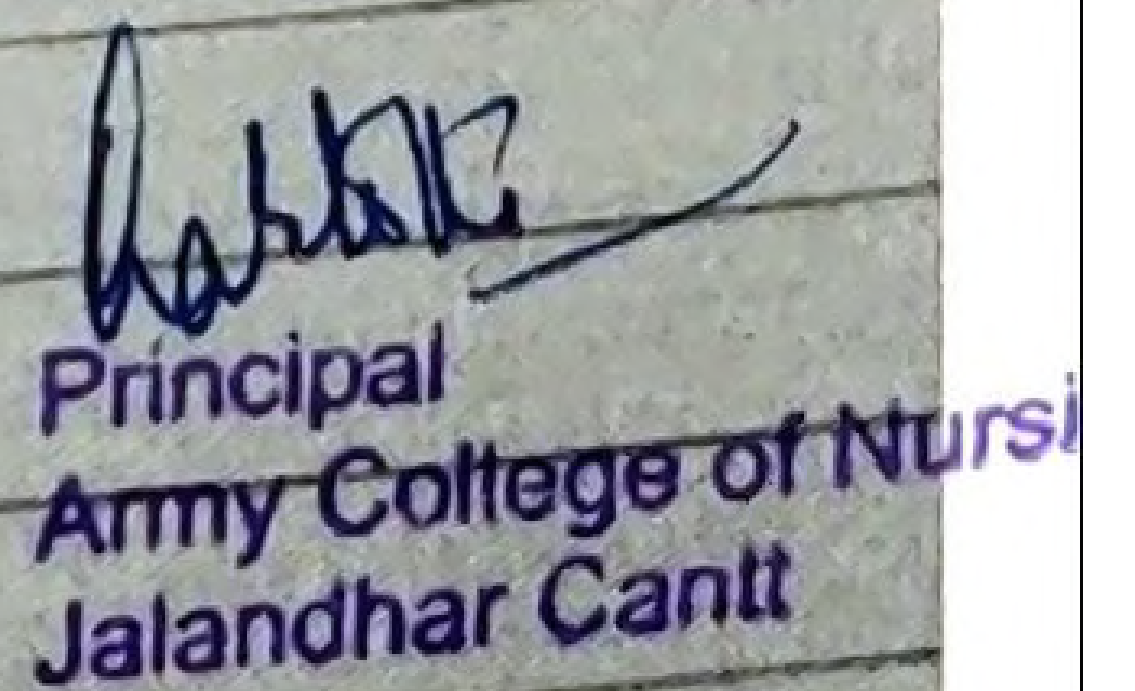 Principal
Army College of Nursi
Jalandhar Cantt